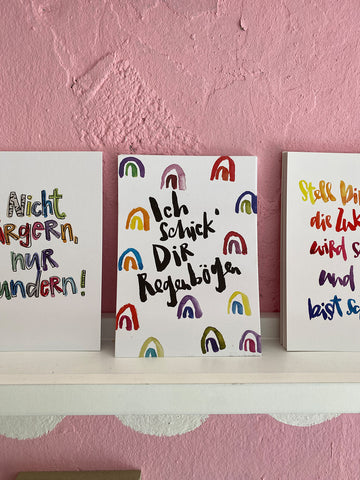 Nicht
ärgern,
nur
undern!
Ich
schick'
DiR
Regenbögen
Stell Di
die Zuk
wird s
und
bist sc